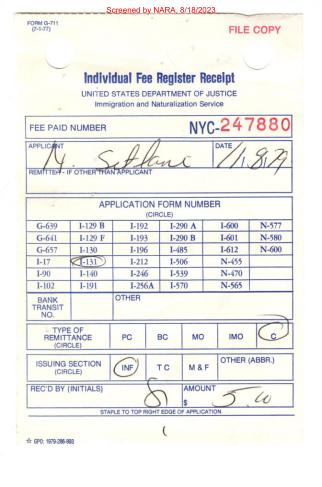 Screened by NARA, 8/18/2023
FORM G-711
(7-1-77)
FILE COPY
Individual Fee Register Receipt
UNITED STATES DEPARTMENT OF JUSTICE
Immigration and Naturalization Service
FEE PAID NUMBER NYC-247880
APPLICANT DATE
N.
REMITTER - IF OTHER THAN APPLICANT
APPLICATION FORM NUMBER
(CIRCLE)
G-639 I-129 B I-192 I-290 A I-600 N-577
G-641 I-129 F I-193 I-290 B I-601 N-580
G-657 I-130 I-196 I-485 I-612 N-600
I-17 I-131 I-212 I-506 N-455
I-90 I-140 I-246 I-539 N-470
I-102 I-191 I-256A I-570 N-565
BANK TRANSIT NO. OTHER
TYPE OF REMITTANCE (CIRCLE) PC BC MO IMO C
ISSUING SECTION (CIRCLE) INF T C M & F OTHER (ABBR.)
REC'D BY (INITIALS) AMOUNT
$ 5.00
STAPLE TO TOP RIGHT EDGE OF APPLICATION
☆ GPO: 1979-286-893